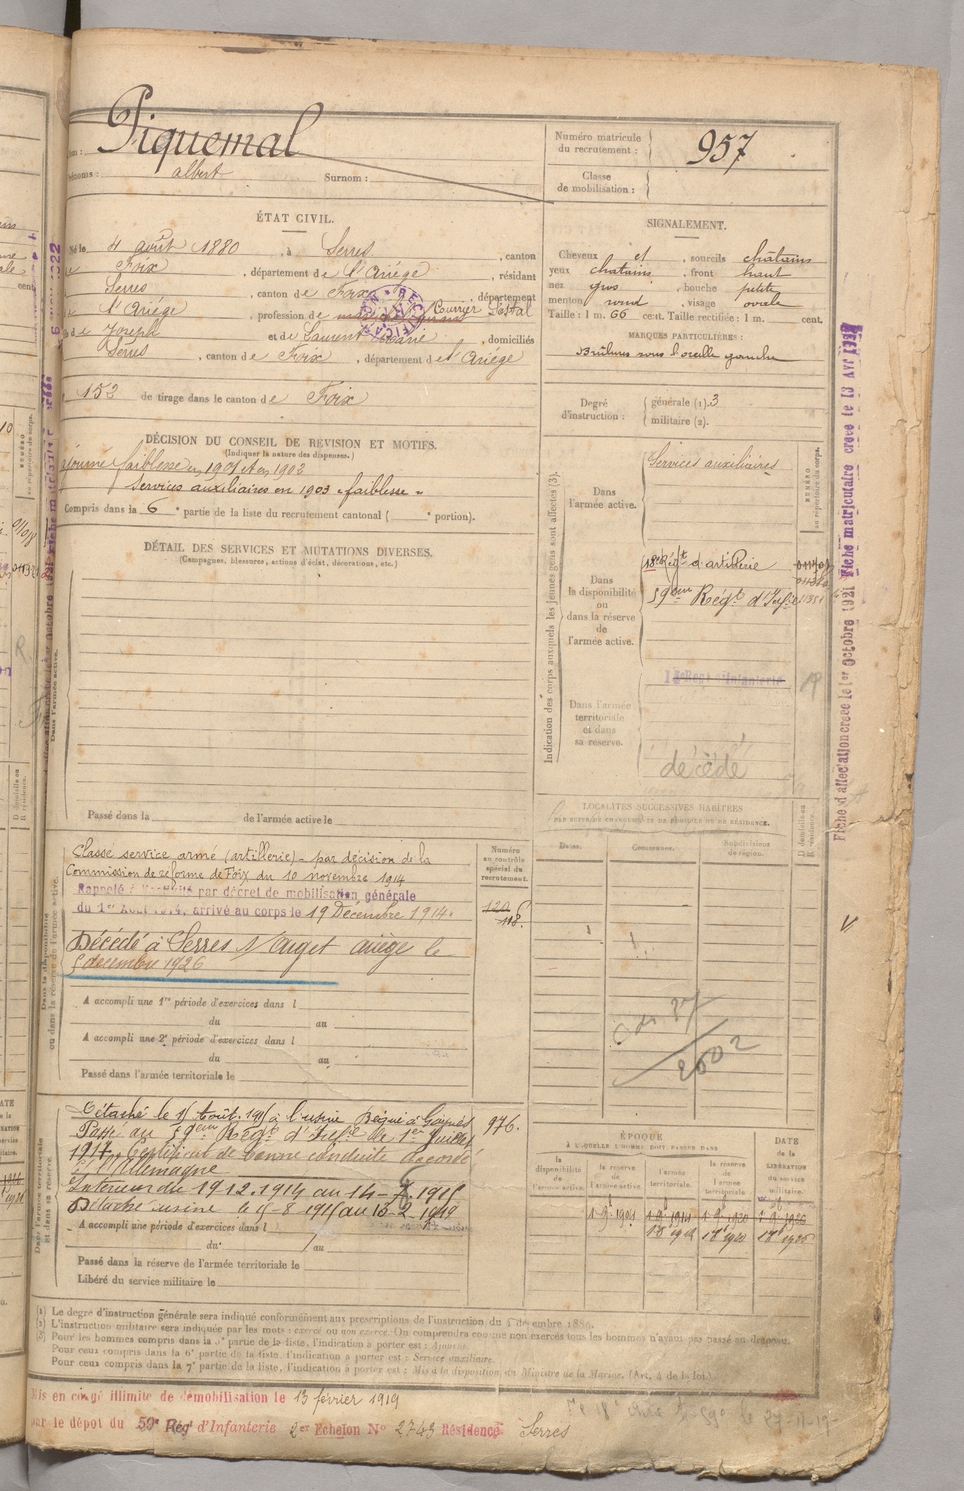 Piquemal
Prénoms : albert Surnom :
Numéro matricule du recrutement : 957
Classe de mobilisation :
ÉTAT CIVIL.
Né le 4 août 1880 , à Serres , canton
de Foix , département de l'Ariège , résidant
Serres , canton de Foix , département
de l'Ariège , profession de Courrier Postal
RECTIFICATION
de Joseph et de Laurent Marie , domiciliés
Serres , canton de Foix , département de l'Ariège
N° 153 de tirage dans le canton de Foix
SIGNALEMENT.
Cheveux et , sourcils châtains
yeux chatains , front haut
nez gros , bouche petite
menton rond , visage ovale
Taille : 1 m. 66 cent. Taille rectifiée : 1 m. cent.
MARQUES PARTICULIÈRES :
Brûlures sous l'oreille gauche
Degré d'instruction : générale (1). 3
militaire (2).
DÉCISION DU CONSEIL DE REVISION ET MOTIFS.
(Indiquer la nature des dispenses.)
ajourné faiblesse en 1901 et en 1902
Services auxiliaires en 1903 "faiblesse"
Compris dans la 6e partie de la liste du recrutement cantonal ( e portion).
DÉTAIL DES SERVICES ET MUTATIONS DIVERSES.
(Campagnes, blessures, actions d'éclat, décorations, etc.)
Passé dans la de l'armée active le
Indication des corps auxquels les jeunes gens sont affectés (3).
NUMÉRO au répertoire du corps.
Dans l'armée active.
Services auxiliaires
Dans la disponibilité ou dans la réserve de l'armée active.
18e Régt d'artillerie
59ème Régt d'Infie
Dans l'armée territoriale et dans sa réserve.
Régt d'Infanterie
décédé
LOCALITÉS SUCCESSIVES HABITÉES
PAR SUITE DE CHANGEMENTS DE DOMICILE OU DE RÉSIDENCE.
D domicile ou R résidence.
Dates. Communes. Subdivisions de région.
2002
Numéro au contrôle spécial du recrutement.
120
118.
Classé service armé (artillerie) - par décision de la
Commission de réforme de Foix du 10 novembre 1914
Rappelé à l'activité par décret de mobilisation générale
du 1er Août 1914, arrivé au corps le 19 Décembre 1914.
Décédé à Serres s/ Arget ariège le
5 décembre 1926
A accompli une 1re période d'exercices dans l
du au
A accompli une 2e période d'exercices dans l
du au
Passé dans l'armée territoriale le
976.
Détaché le 15 Août 1915 à l'usine
Passé au 59ème Régt d'Infie le 1er Juillet
1917. Certificat de bonne conduite accordé
c/ l'Allemagne
Intérieur du 19.12.1914 au 14-8.1915
Détaché usine le 15-8-1915 au 13-2-1919
A accompli une période d'exercices dans l
du au
Passé dans la réserve de l'armée territoriale le
Libéré du service militaire le
ÉPOQUE
À LAQUELLE L'HOMME DOIT PASSER DANS
la disponibilité de l'armée active. la réserve de l'armée active. l'armée territoriale. la réserve de l'armée territoriale.
DATE de la LIBÉRATION du service militaire.
(1) Le degré d'instruction générale sera indiqué conformément aux prescriptions de l'instruction du 4 décembre 1889.
(2) L'instruction militaire sera indiquée par les mots : exercé ou non exercé. On comprendra comme non exercés tous les hommes n'ayant pas passé au drapeau.
(3) Pour les hommes compris dans la 5e partie de la liste, l'indication à porter est : Ajourné.
Pour ceux compris dans la 6e partie de la liste, l'indication à porter est : Service auxiliaire.
Pour ceux compris dans la 7e partie de la liste, l'indication à porter est : Mis à la disposition du Ministre de la Marine. (Art. 4 de la loi.)
Mis en congé illimité de démobilisation le 13 février 1919
par le dépôt du 59e Reg d'Infanterie 2er Echelon No 2743 Résidence Serres
Fiche d'affectation créée le 1er Octobre 1921 Fiche matriculaire créée le 13 Avr